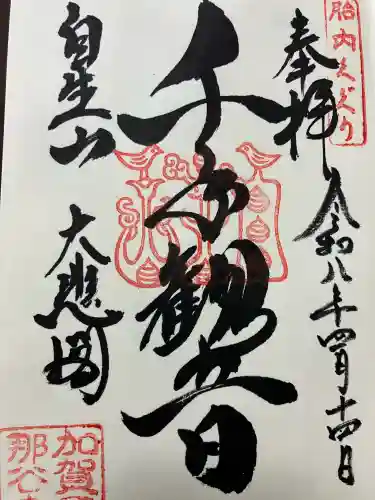 胎内くぐり
奉拝
令和八年四月十四日
千手観音
自生山
大悲閣
加賀
那谷